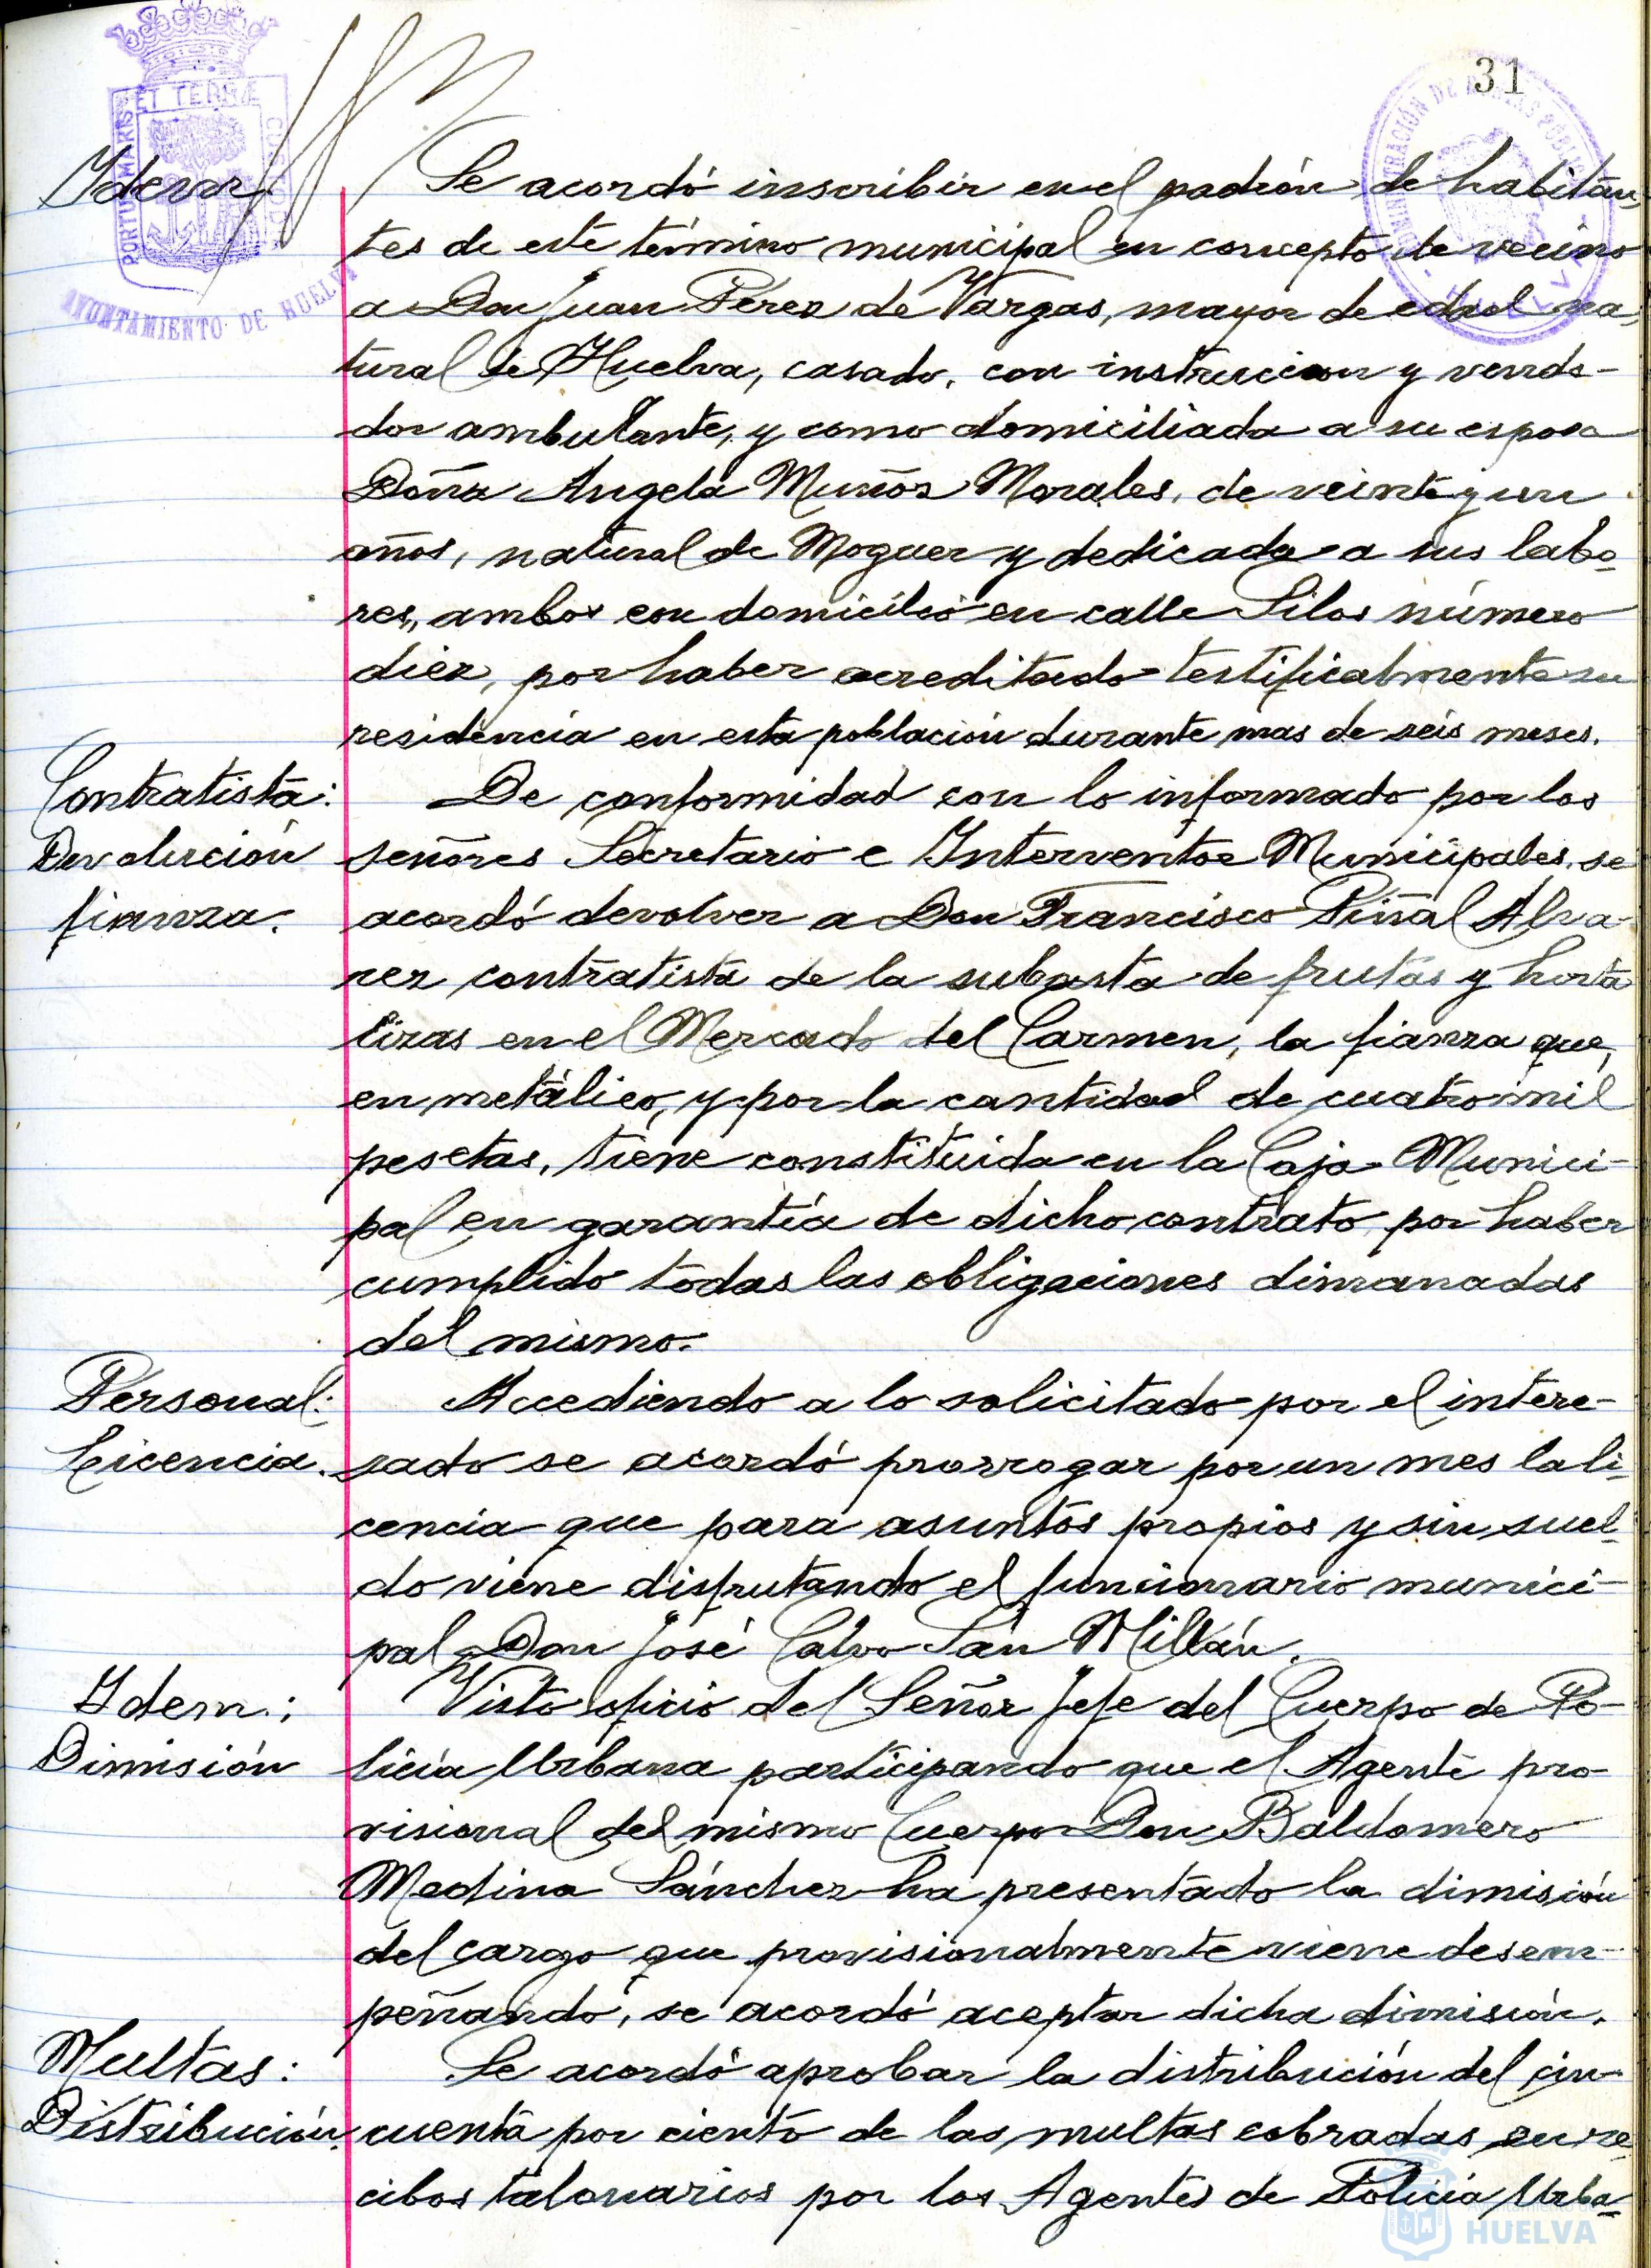 31
ET TERRÆ
PORTUS MARIS
CUSTODI
AYUNTAMIENTO DE HUELVA
Idem
Se acordó inscribir en el padrón de habitan-
tes de este término municipal en concepto de vecino
a Don Juan Pérez de Vargas, mayor de edad na-
tural de Huelva, casado, con instruccion y vende-
dor ambulante, y como domiciliada a su esposa
Doña Angela Muñoz Morales, de veinte y un
años, natural de Moguer y dedicada a sus labo-
res, ambos con domicilio en calle Silos número
diez, por haber acreditado testificalmente su
residencia en esta población durante mas de seis meses.
Contratista:
Devolución
fianza.
De conformidad con lo informado por los
señores Secretario e Interventor Municipales, se
acordó devolver a Don Francisco Piñal Alva-
rez contratista de la subasta de frutas y horta
lizas en el Mercado del Carmen, la fianza que,
en metálico, y por la cantidad de cuatro mil
pesetas, tiene constituida en la Caja Munici-
pal en garantía de dicho contrato, por haber
cumplido todas las obligaciones dimanadas
del mismo.
Personal:
Licencia.
Accediendo a lo solicitado por el intere-
sado se acordó prorrogar por un mes la li-
cencia que para asuntos propios y sin suel-
do viene disfrutando el funcionario munici-
pal Don José Calvo San Millán.
Idem:
Dimisión
Visto oficio del Señor Jefe del Cuerpo de Po-
licía Urbana participando que el Agente pro-
visional del mismo Cuerpo Don Baldomero
Medina Sánchez ha presentado la dimisión
del cargo que provisionalmente viene desem-
peñando, se acordó aceptar dicha dimisión.
Multas:
Distribución.
Se acordó aprobar la distribución del cin-
cuenta por ciento de las multas cobradas en re-
cibos talonarios por los Agentes de Policía Urba-
HUELVA